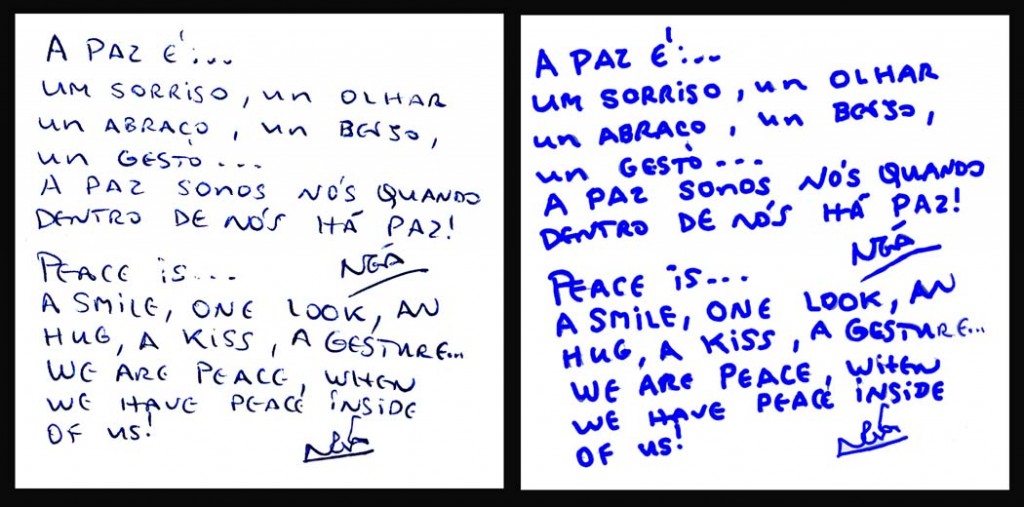 A PAZ É:...
UM SORRISO, UM OLHAR
UM ABRAÇO, UM BEIJO,
UM GESTO...
A PAZ SOMOS NÓS QUANDO
DENTRO DE NÓS HÁ PAZ!
NEÁ
PEACE iS...
A SMILE, ONE LOOK, AN
HUG, A KiSS, A GESTURE...
WE ARE PEACE, WHEN
WE HAVE PEACE iNSiDE
OF US!
A PAZ É:...
UM SORRISO, UM OLHAR
UM ABRAÇO, UM BEIJO,
UM GESTO...
A PAZ SOMOS NÓS QUANDO
DENTRO DE NÓS HÁ PAZ!
NEÁ
PEACE iS...
A SMILE, ONE LOOK, AN
HUG, A KiSS, A GESTURE...
WE ARE PEACE, WHEN
WE HAVE PEACE iNSiDE
OF US!